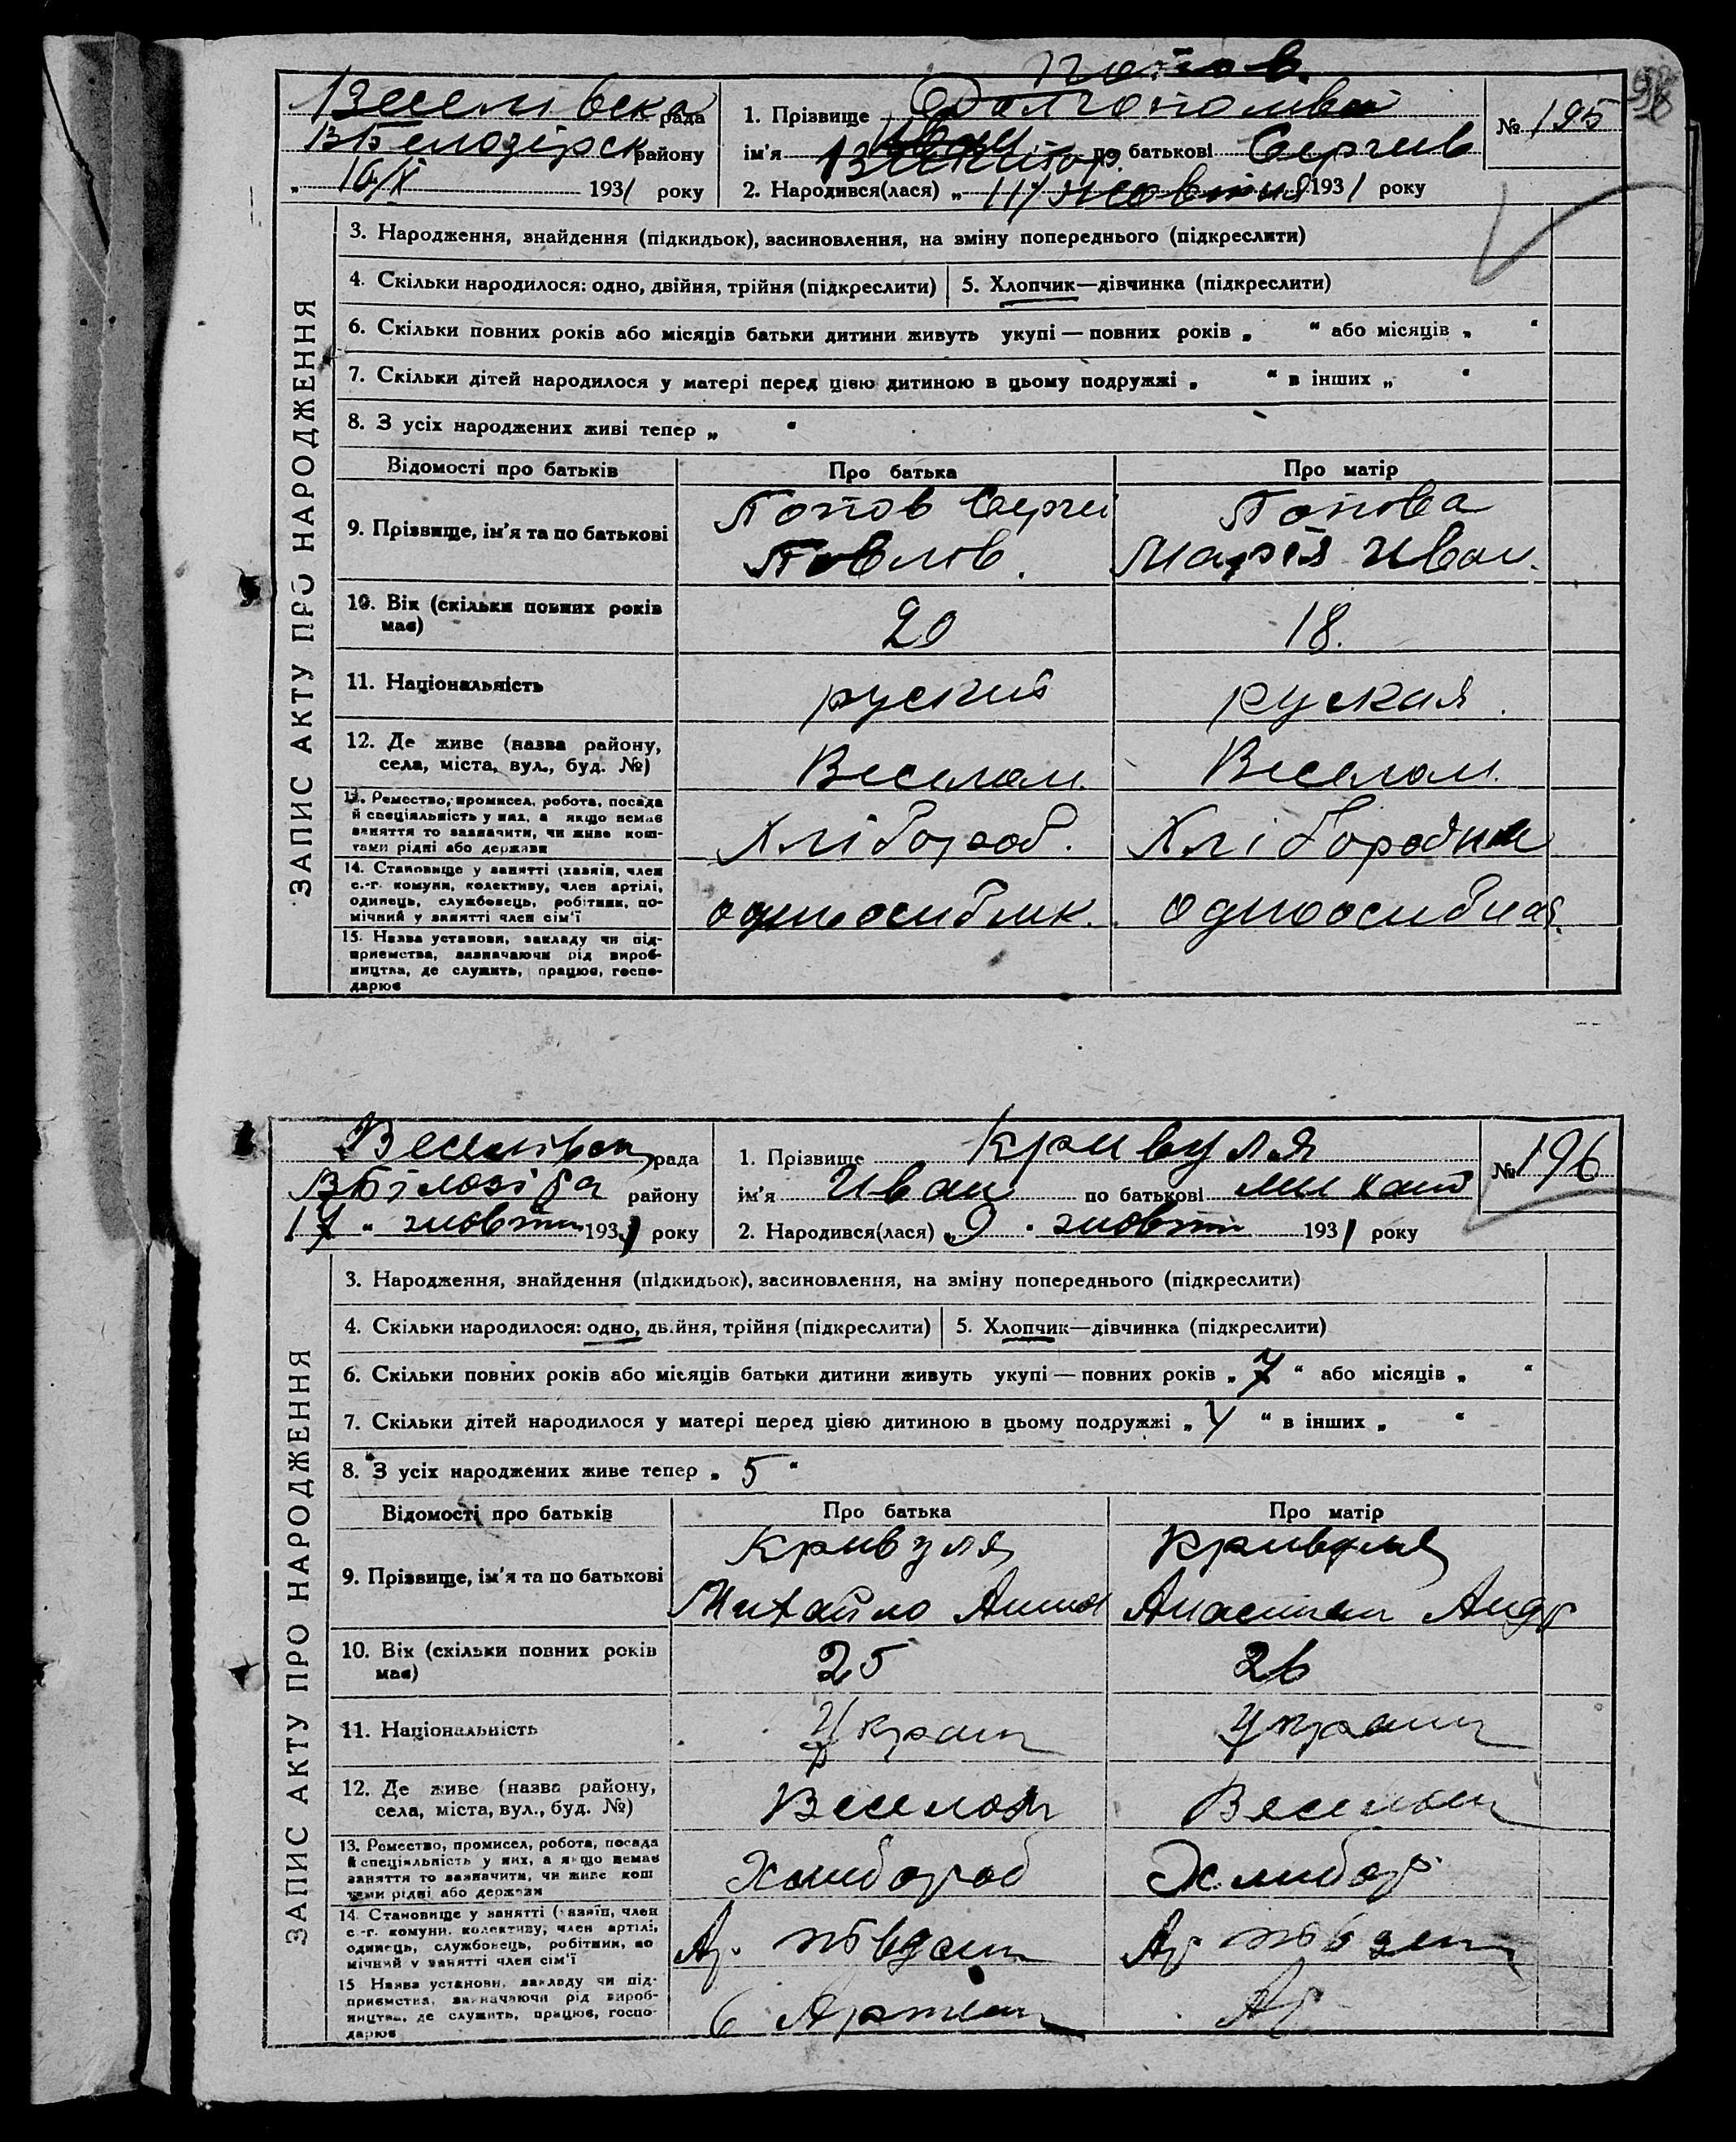 Попов.
Веселівска рада
1. Прізвище
№ 195
В Белозірск району
ім'я Виктор по батькові Сергеїв
„ 16/X 1931 року
2. Народився(лася) „ 11 „ жовтня 1931 року
3. Народження, знайдення (підкидьок), засиновлення, на зміну попереднього (підкреслити)
4. Скільки народилося: одно, двійня, трійня (підкреслити)
5. Хлопчик—дівчинка (підкреслити)
6. Скільки повних років або місяців батьки дитини живуть укупі — повних років „ “ або місяців „ “
7. Скільки дітей народилося у матері перед цією дитиною в цьому подружжі „ “ в інших „ “
8. З усіх народжених живі тепер „ “
ЗАПИС АКТУ ПРО НАРОДЖЕННЯ
Відомості про батьків
Про батька
Про матір
9. Прізвище, ім'я та по батькові
Попов Сергеі
Павлов.
Попова
Мария Иван.
10. Вік (скільки повних років
має)
20
18.
11. Національність
руский
руская.
12. Де живе (назва району,
села, міста, вул., буд. №)
Веселом.
Веселом.
13. Ремество, промисел, робота, посада
й спеціяльність у них, а якщо немає
заняття то зазначити, чи живе кош-
тами рідні або держави
Хлібороб.
Хліборобка
14. Становище у занятті (хазяїн, член
с.-г. комуни, колективу, член артілі,
одинець, службовець, робітник, по-
мічний у занятті член сім'ї
односибник.
одноосибная.
15. Назва установи, закладу чи під-
приємства, зазначаючи рід вироб-
ництва, де служить, працює, госпо-
дарює
Веселівска рада
1. Прізвище Кривуля
№ 196
В Білозірка району
ім'я Иван по батькові Михайл
17 „ жовтн 1931 року
2. Народився(лася) „ 9 „ жовтн 1931 року
3. Народження, знайдення (підкидьок), засиновлення, на зміну попереднього (підкреслити)
4. Скільки народилося: одно, двійня, трійня (підкреслити)
5. Хлопчик—дівчинка (підкреслити)
6. Скільки повних років або місяців батьки дитини живуть укупі — повних років „ 7 “ або місяців „ “
7. Скільки дітей народилося у матері перед цією дитиною в цьому подружжі „ 4 “ в інших „ “
8. З усіх народжених живе тепер „ 5 “
ЗАПИС АКТУ ПРО НАРОДЖЕННЯ
Відомості про батьків
Про батька
Про матір
9. Прізвище, ім'я та по батькові
Кривуля
Михайло
Кривуля
Анастаси Андр
10. Вік (скільки повних років
має)
25
26
11. Національність
Украин
Украин
12. Де живе (назва району,
села, міста, вул., буд. №)
Веселом
Веселом
13. Ремество, промисел, робота, посада
й спеціяльність у них, а якщо немає
заняття то зазначити, чи живе кош
тами рідні або держави
Хлибороб
Хлибор
14. Становище у занятті (хазяїн, член
с.-г. комуни, колективу, член артілі,
одинець, службовець, робітник, по
мічний у занятті член сім'ї
Ар.
Ар
15 Назва установи, закладу чи під-
приємства, зазначаючи рід вироб-
ництва, де служить, працює, госпо-
дарює
в Артели
Ар